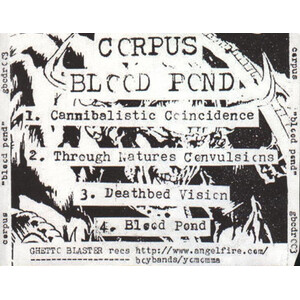 CORPUS
BLOOD POND
1. Cannibalistic Coincidence
2. Through Natures Convulsions
3. Deathbed Vision
4. Blood Pond
GHETTO BLASTER recs http://www.angelfire.com/
bcybands/ycmcmma
corpus "blood pond" gbcdr003
corpus "blood pond" gbcdr003